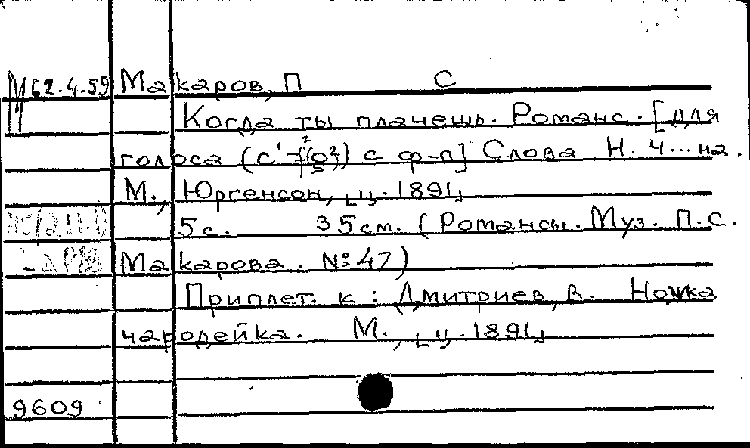 М 62.4.59 Макаров, П С
Когда ты плачешь. Романс. [для
голоса (с¹- g²) с ф-п] Слова Н. Ч...на.
М., Юргенсон, ц. 1891
5 с. 35 см. (Романсы. Муз. П.С.
Макарова. № 47)
Приплет. к: Дмитриев, В. Ночка
чародейка. М., ц. 1891
9609